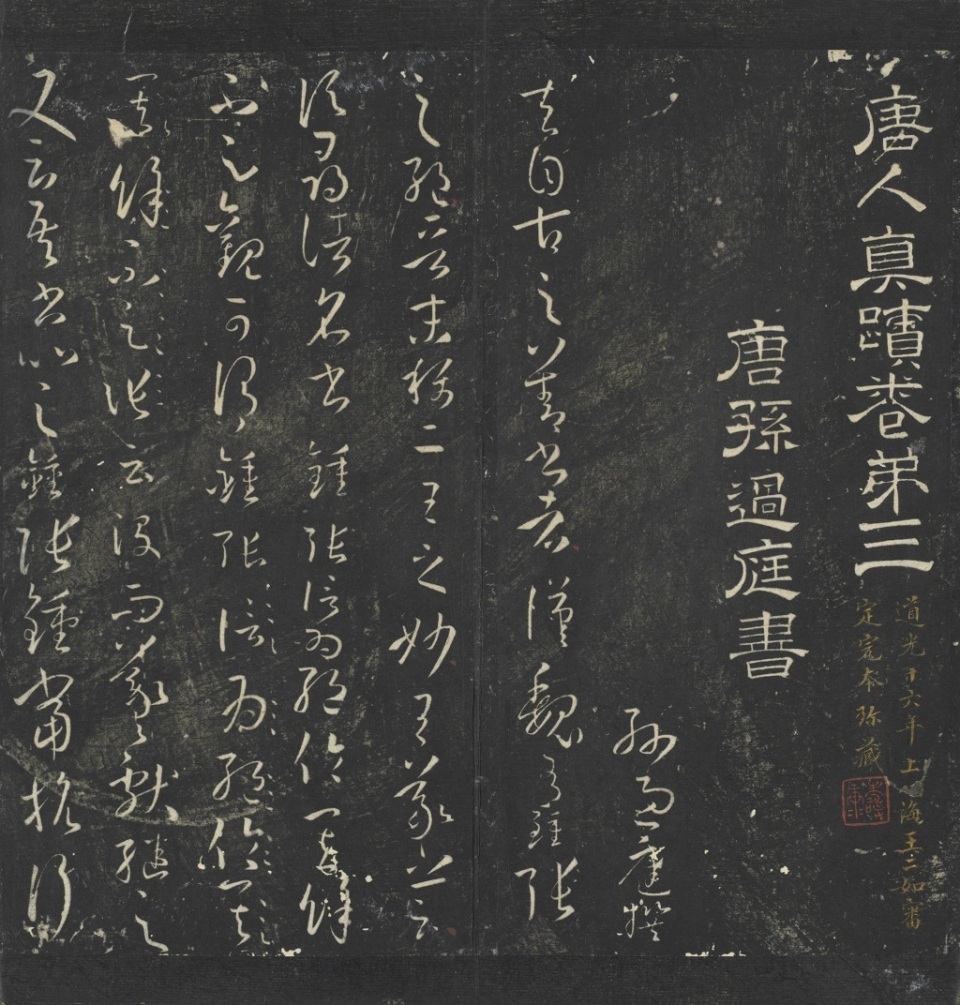 唐人真蹟卷弟三
道光十六年上海王二如審
定宛本珍藏
唐孫過庭書
孫過庭撰
夫自古之善書者漢魏有鍾張
之絕晉末稱二王之妙王羲之云
頃尋諸名書鍾張信為絕倫其餘
不足觀可謂鍾張信為絕倫其
其餘不足張云沒而羲獻繼之
又云吾書比之鍾張鍾當抗行